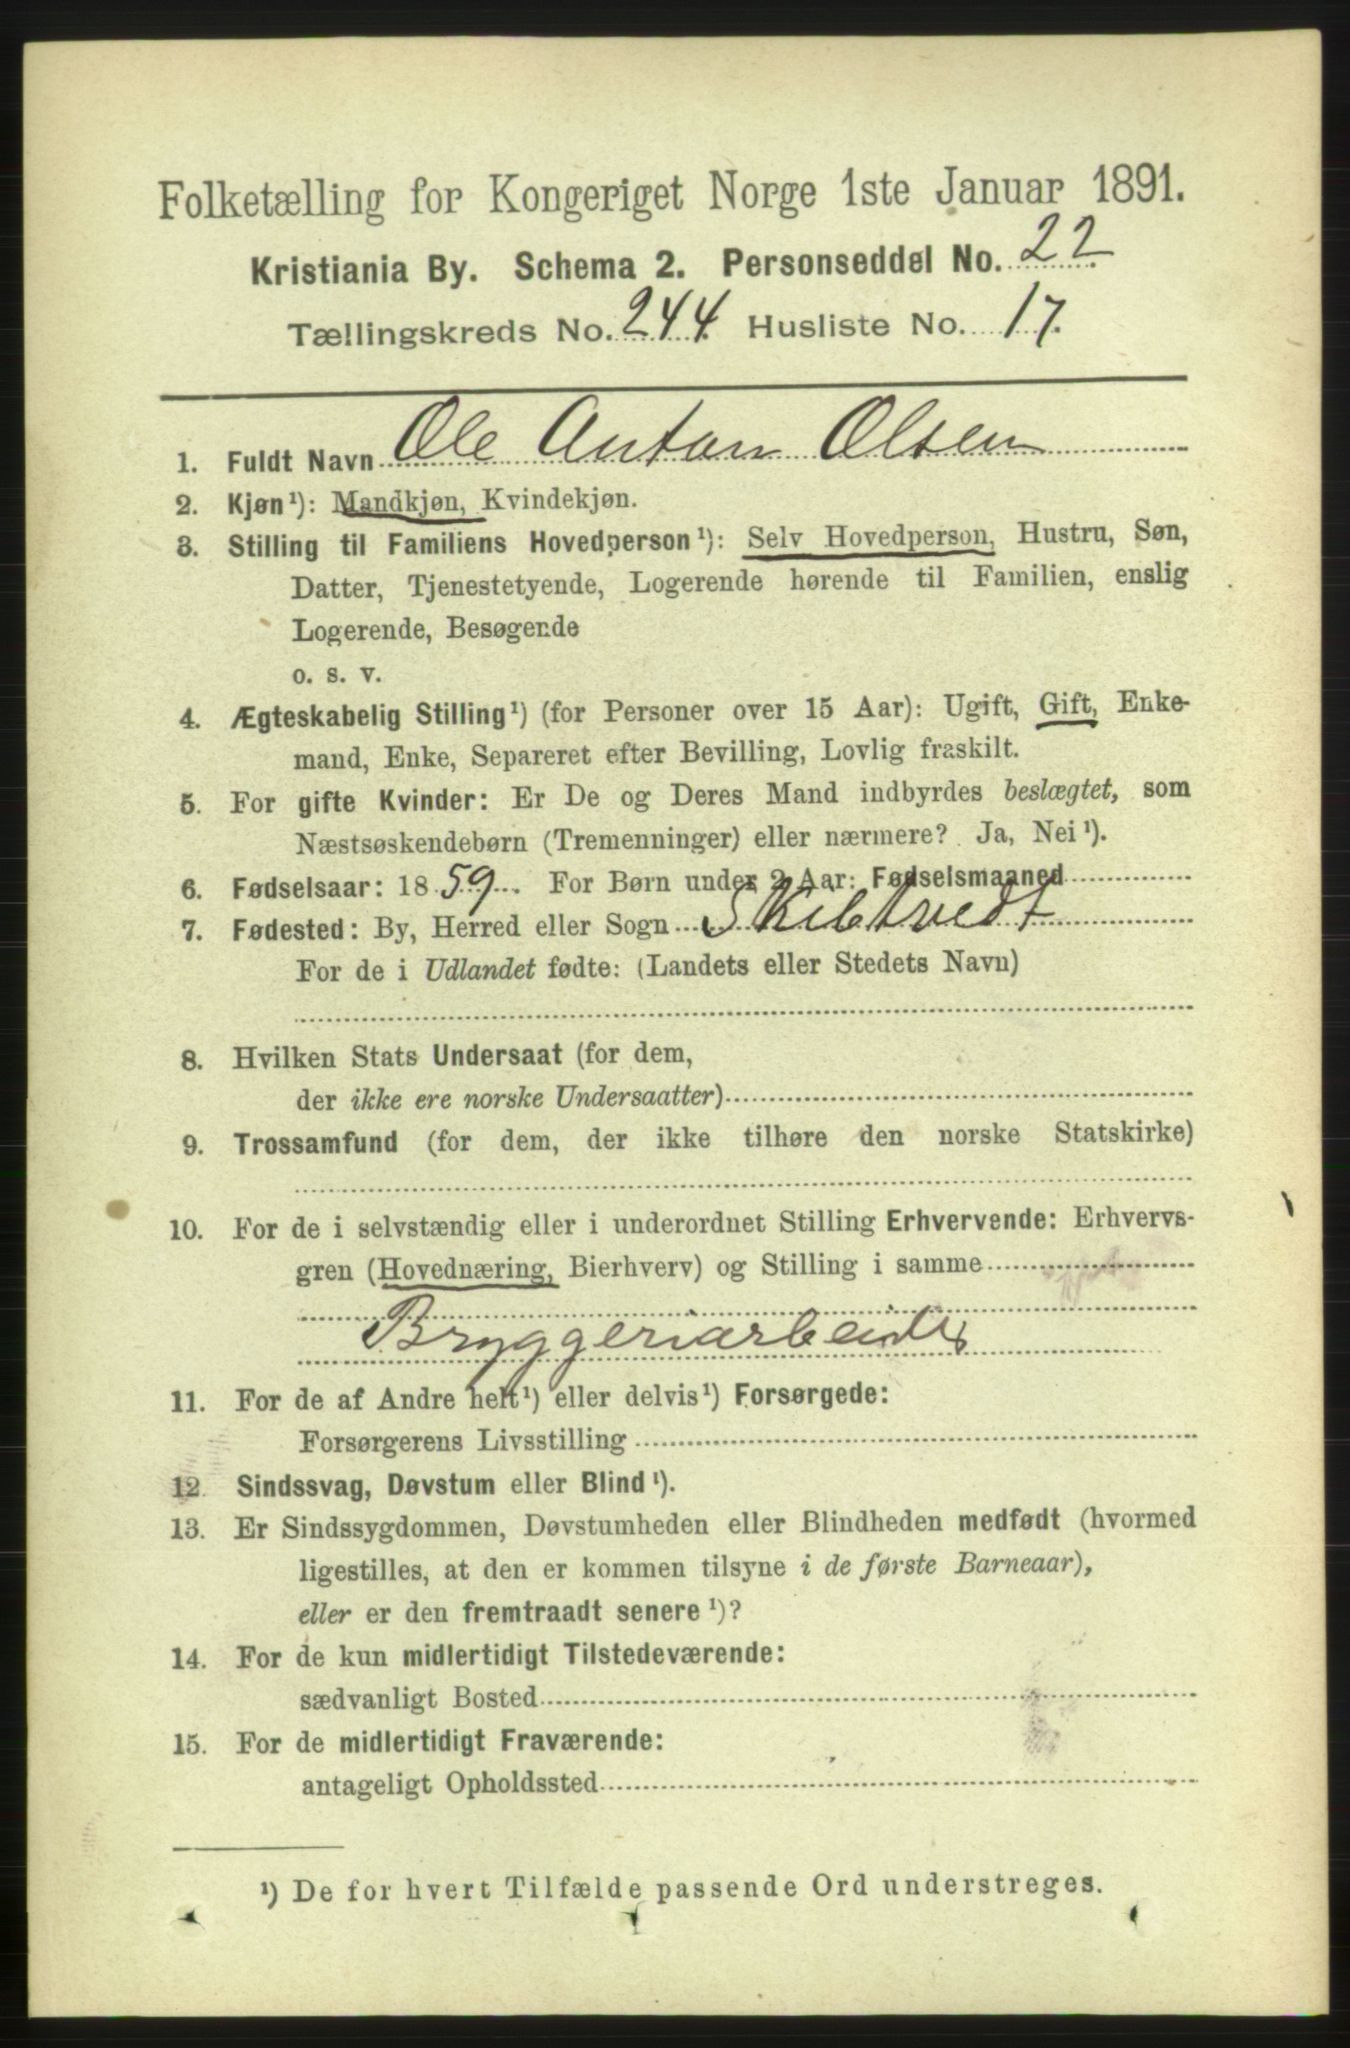 Folketælling for Kongeriget Norge 1ste Januar 1891.
Kristiania By. Schema 2. Personseddel No. 22
Tællingskreds No. 244 Husliste No. 17.
1. Fuldt Navn Ole Anton Olsen
2. Kjøn¹): Mandkjøn, Kvindekjøn.
3. Stilling til Familiens Hovedperson¹): Selv Hovedperson, Hustru, Søn,
Datter, Tjenestetyende, Logerende hørende til Familien, enslig
Logerende, Besøgende
o. s. v.
4. Ægteskabelig Stilling¹) (for Personer over 15 Aar): Ugift, Gift, Enke-
mand, Enke, Separeret efter Bevilling, Lovlig fraskilt.
5. For gifte Kvinder: Er De og Deres Mand indbyrdes beslægtet, som
Næstsøskendebørn (Tremenninger) eller nærmere? Ja, Nei¹).
6. Fødselsaar: 1859. For Børn under 2 Aar: Fødselsmaaned
7. Fødested: By, Herred eller Sogn Skibtvedt
For de i Udlandet fødte: (Landets eller Stedets Navn)
8. Hvilken Stats Undersaat (for dem,
der ikke ere norske Undersaatter)
9. Trossamfund (for dem, der ikke tilhøre den norske Statskirke)
10. For de i selvstændig eller i underordnet Stilling Erhvervende: Erhvervs-
gren (Hovednæring, Bierhverv) og Stilling i samme
Bryggeriarbeider
11. For de af Andre helt¹) eller delvis¹) Forsørgede:
Forsørgerens Livsstilling
12. Sindssvag, Døvstum eller Blind¹).
13. Er Sindssygdommen, Døvstumheden eller Blindheden medfødt (hvormed
ligestilles, at den er kommen tilsyne i de første Barneaar),
eller er den fremtraadt senere¹)?
14. For de kun midlertidigt Tilstedeværende:
sædvanligt Bosted
15. For de midlertidigt Fraværende:
antageligt Opholdssted
¹) De for hvert Tilfælde passende Ord understreges.